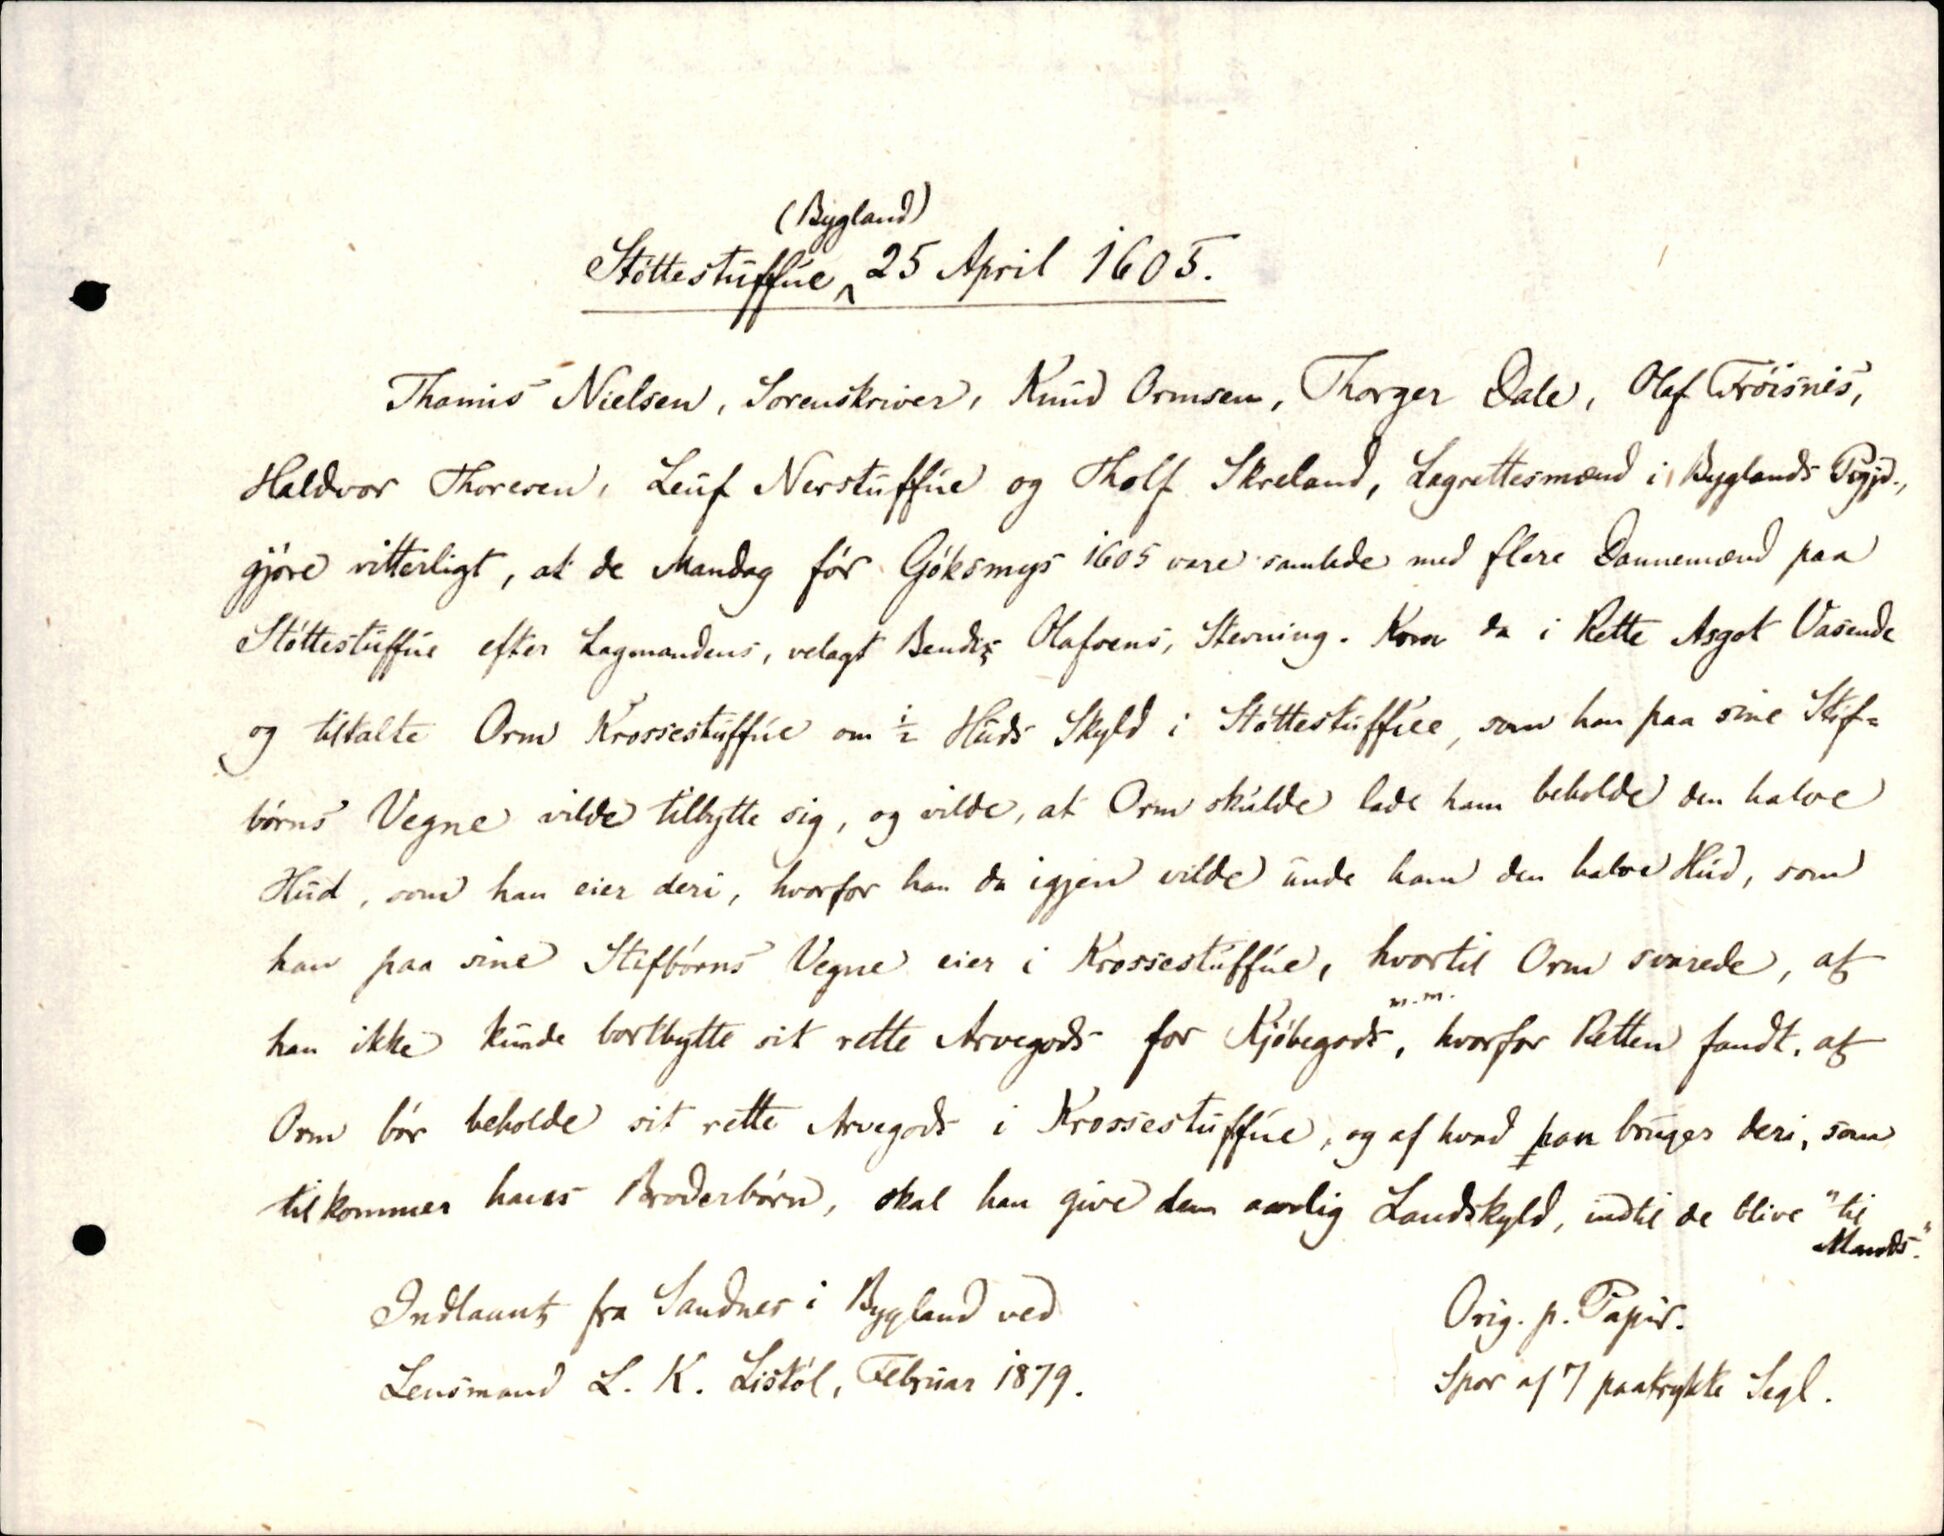 (Bygland)
Støttestuffue 25 April 1605.
Thamis Nielsen, Sorenskriver, Knud Ormsen, Thorger Dale, Olaf Frøisnis,
Haldvor Thoresen, Leuf Nerstuffue og Tholf Skreland, Lagrettesmænd i Byglands Pgjd.,
gjøre vitterligt, at de Mandag før Gøksmys 1605 vare samlede med flere Dannemænd paa
Støttestuffue efter Lagmandens, velagt Bendix Olafsens, Stevning. Kom da i Rette Asgot Vasende
og tiltalte Orm Krossestuffue om ½ Huds Skyld i Støttestuffue, som han paa sine Stif=
børns Vegne vilde tilbytte sig, og vilde, at Orm skulde lade ham beholde den halve
Hud, som han eier deri, hvorfor han da igjen vilde unde ham den halve Hud, som
han paa sine Stifbørns Vegne eier i Krossestuffue, hvortil Orm svarede, at
han ikke kunde bortbytte sit rette Arvegods for Kjøbegods m.m., hvorfor Retten fandt, at
Orm bør beholde sit rette Arvegods i Krossestuffue, og af hvad han bruger deri, som
tilkommer hans Broderbørn, skal han give dem aarlig Landskyld, indtil de blive "til
Mands."
Indlaant fra Sandnes i Bygland ved
Lensmand L. K. Liskøl, Februar 1879.
Orig. p. Papir.
Spor af 7 paatrykte Segl.